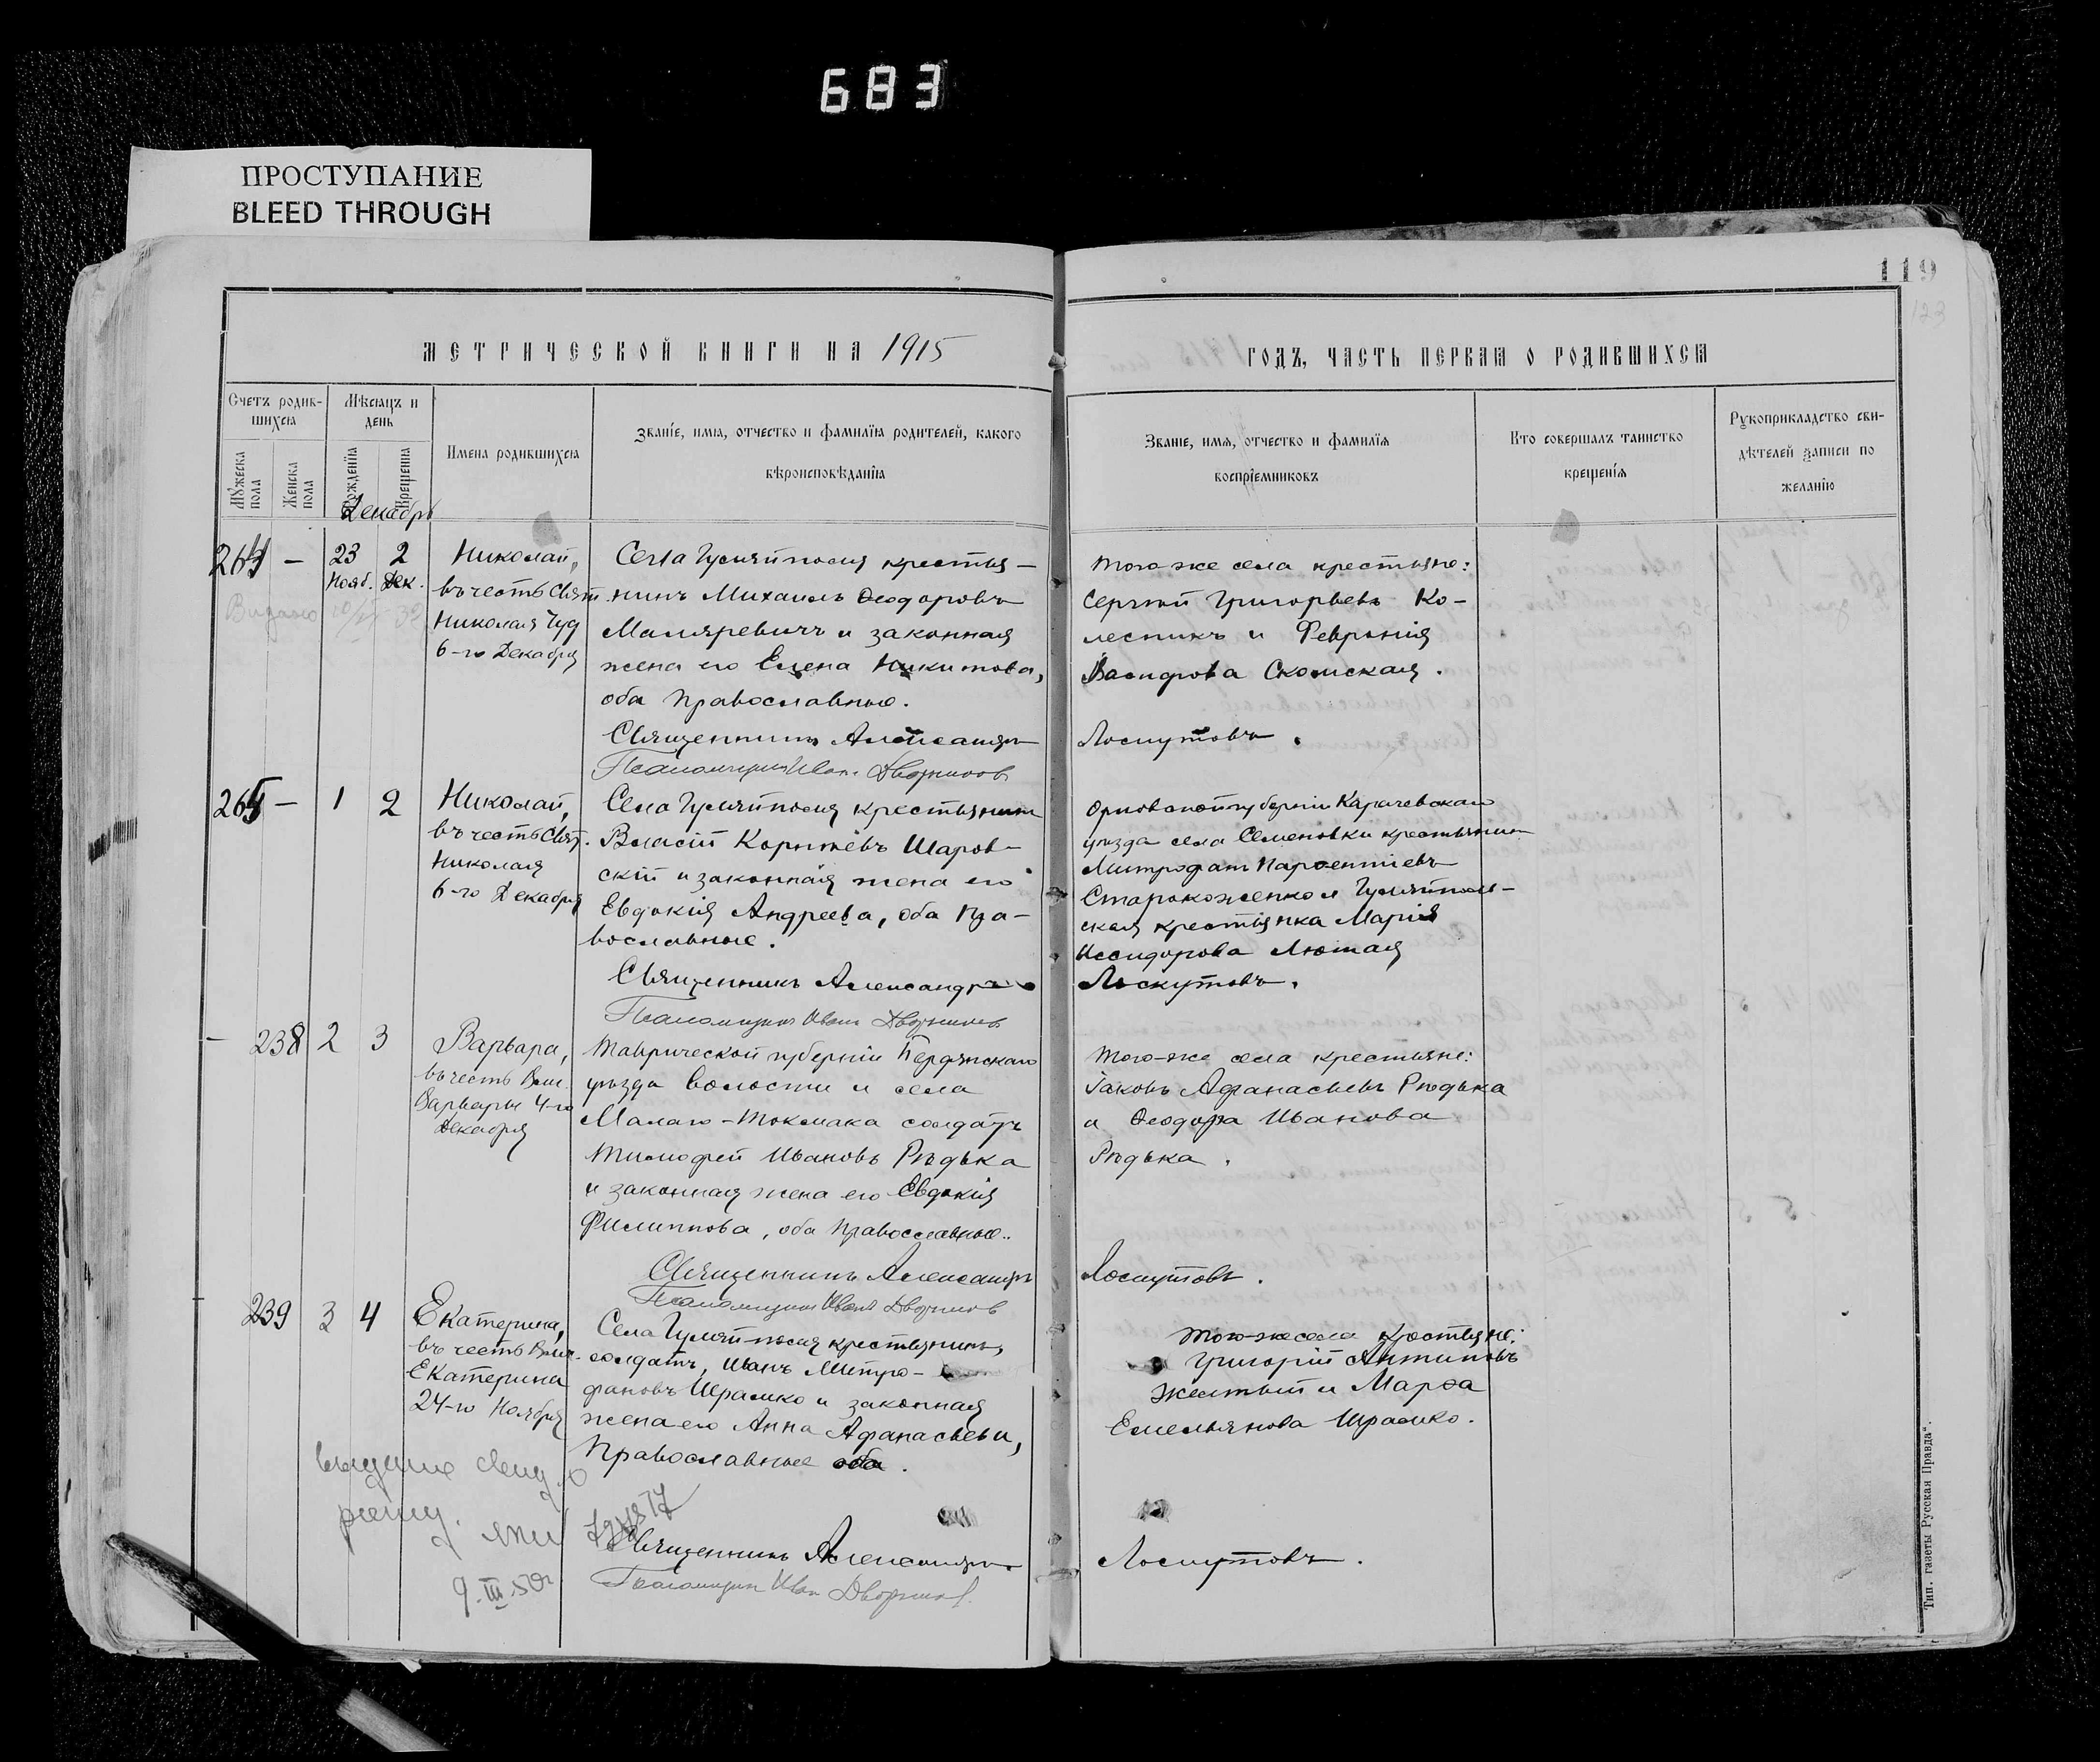 683
ПРОСТУПАНИЕ
BLEED THROUGH
119
123
МЕТРИЧЕСКОЙ КНИГИ НА 1915
ГОДЪ, ЧАСТЬ ПЕРВАЯ О РОДИВШИХСЯ
Счетъ родив-
шихся
Мѣсяцъ и
день
Мужеска
пола
Женска
пола
Рожденїя
Крещенїя
Имена родившихся
Званїе, имя, отчество и фамилїя родителей, какого
вѣроисповѣданїя
Званїе, имя, отчество и фамилїя
воспрїемниковъ
Кто совершалъ таинство
крещенїя
Рукоприкладство сви-
дѣтелей записи по
желанїю
Декабрь
264 — 23 2
Нояб. Дек.
Николай,
въ честь Свят.
Николая Чуд
6-го Декабря
Села Гуляйполя крестья-
нинъ Михаилъ Ѳеодоровъ
Маляревичъ и законная
жена его Елена Никитова,
оба православные.
Священникъ Александръ
Псаломщикъ Иванъ Дворников
Того-же села крестьяне:
Сергѣй Григорьевъ Ко-
лесникъ и Феврония
Скомская.
Лоскутовъ.
265 — 1 2
Николай,
въ честь Свят.
Николая
6-го Декабря
Села Гуляйполя крестьянинъ
Власій Корнѣевъ Шаров-
скій и законная жена его
Евдокія Андреева, оба пра-
вославные.
Священникъ Александръ
Псаломщикъ Иванъ Дворников
Орловской губерніи Карачевскаго
уѣзда села Семеновки крестьянинъ
Митрофанъ Парѳентіевъ
Старокоженко и Гуляйполь-
ская крестьянка Марія
Иссидорова Лютая
Лоскутовъ.
— 238 2 3
Варвара,
въ честь Вел.
Варвары 4-го
Декабря
Таврической губерніи Бердянскаго
уѣзда волости и села
Малаго-Токмака солдатъ
Тимофей Ивановъ Рѣдька
и законная жена его Евдокія
Филиппова, оба православные.
Священникъ Александръ
Псаломщикъ Иванъ Дворников
Того-же села крестьяне:
Іаковъ Афанасьевъ Рѣдька
и Ѳеодора Иванова
Рѣдька.
Лоскутовъ.
— 239 3 4
Екатерина,
въ честь Вел.
Екатерина
24-го Ноября
Села Гуляй-поля крестьянинъ,
солдатъ, Иванъ Митро-
фановъ Шрамко и законная
жена его Анна Афанасьева,
православные оба.
Священникъ Александръ
Псаломщикъ Иван Дворников
Того-же села крестьяне:
Григорій Антиповъ
Желтый и Марѳа
Емельянова Шрамко.
Лоскутовъ.
9.III.50г
Тип. газеты „Русская Правда".